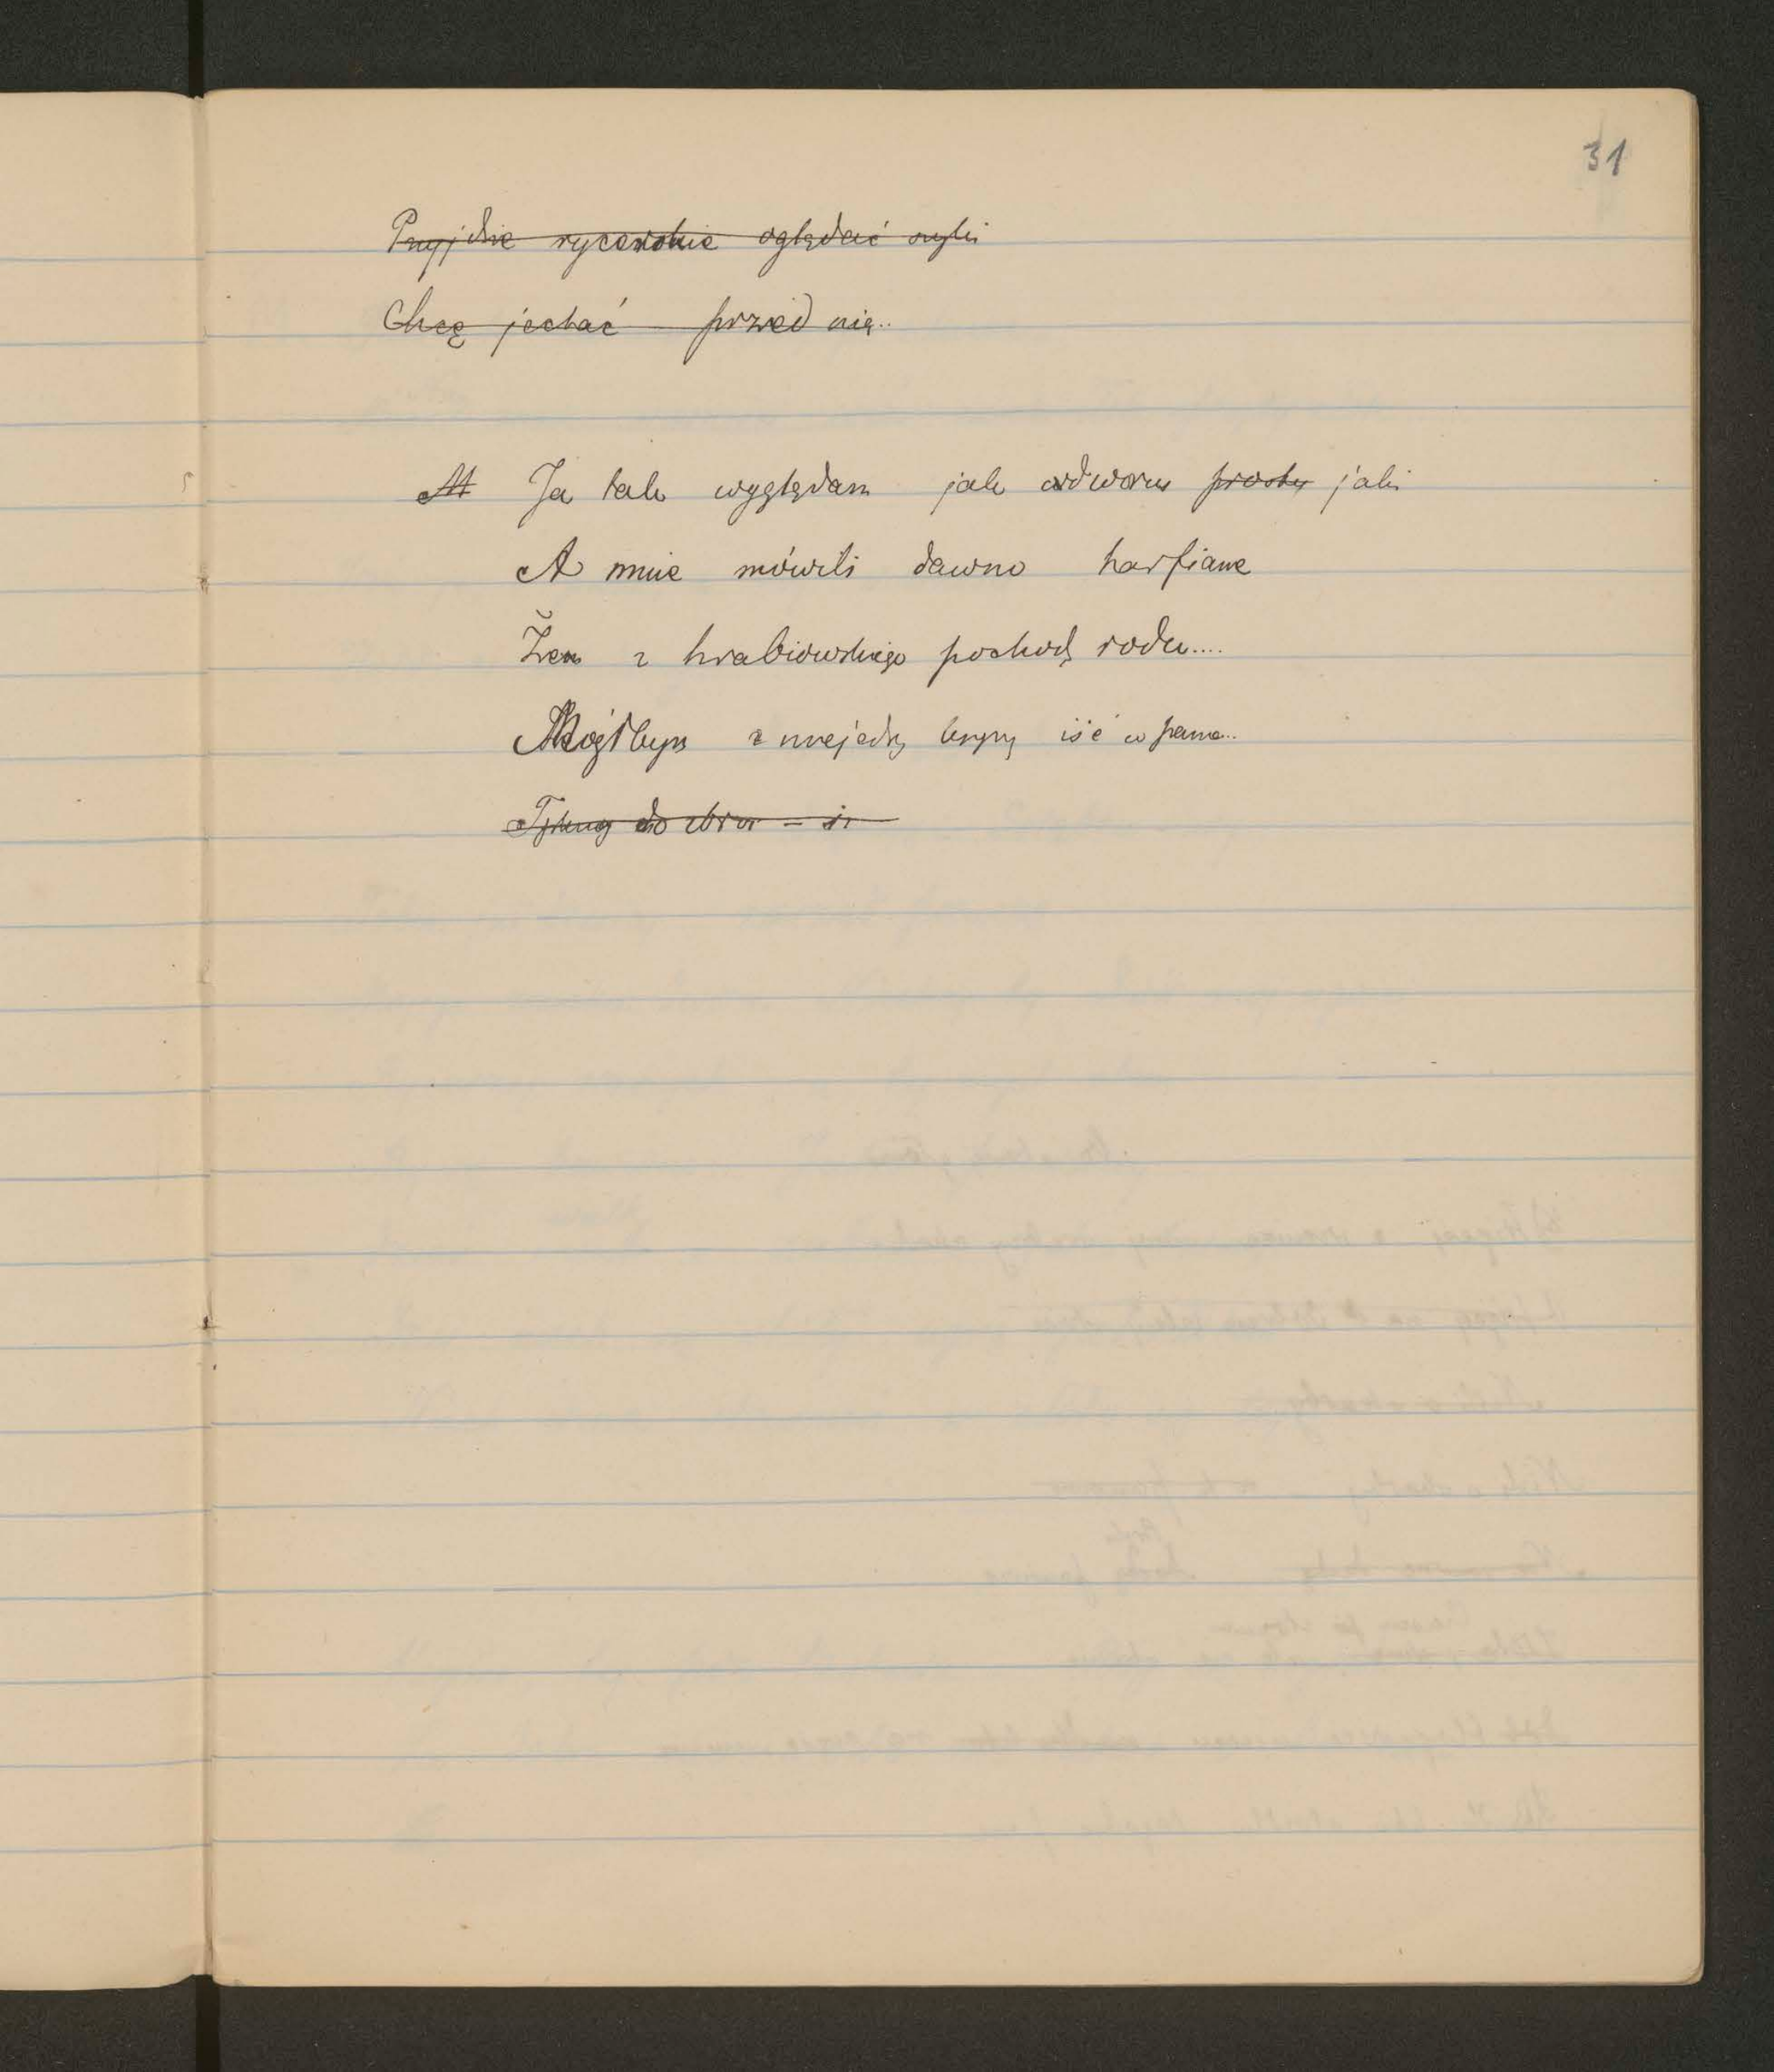 31
Przyjdzie rycerskie oglądać szyki
Chcę jechać przed nią..
M Ja tak wyglądam jak prosty jaki
A mnie mówili dawno harfiane
Żem z hrabiowskiego pochodzę rodu....
Mógłbym z niejedną iść w pana..
do zbroi –